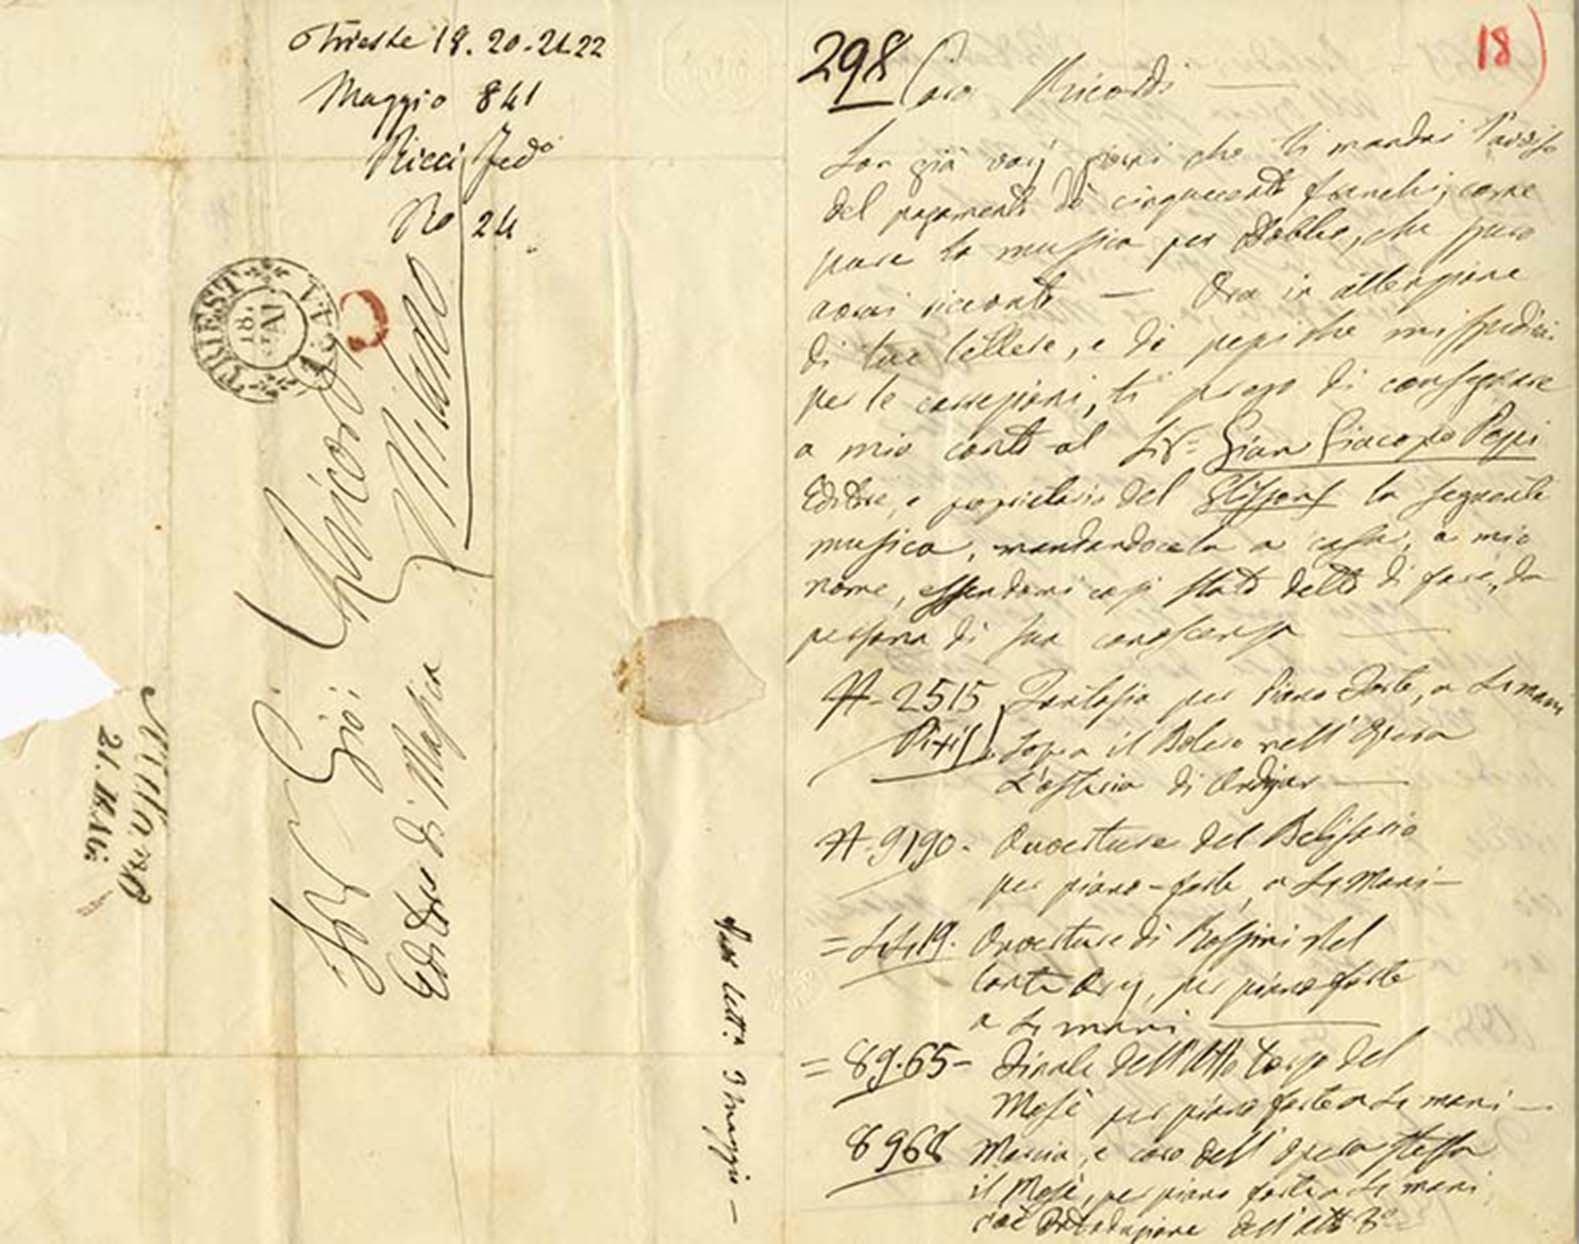 Trieste 18. 20. 21. 22
Maggio 841
Ricci Fedo
No 24
TRIEST
MAI
Sigr Gio: Ricordi
Editore di Musica
Milano
MILANO
21. MAG.
298
18
Caro Ricordi
Son già varj giorni che ti mandai l'avviso
del pagamento di cinquecento franchi, come
pure la musica per Diabelli, che spero
avrai ricevuto — Ora in attenzione
di tue lettere, e di pezzi che mi spedirai
per le correzioni, ti prego di consegnare
a mio conto al Sigr Gian Giacomo Pezzi
Editore, e proprietario del Glissons la seguente
musica, mandandocela a casa, a mio
nome, essendomi così stato detto di fare, da
persona di sua conoscenza
N. 2515 Fantasia per Piano Forte, a 4 mani
Pixis sopra il Bolero nell'Opera
L'assedio di
N. 9190. Ouverture del Belisario
per piano-forte, a 4 mani
= 4419. Ouverture di Rossini nel
Conte Ory, per piano forte
a 4 mani
= 8965 Finale dell'Atto terzo del
Mosè per piano forte a 4 mani
8968 Marcia, e coro dell'Opera stessa
il Mosè, per piano forte a 4 mani
cioè Introduzione dell'atto 3o
lett.a 3 maggio